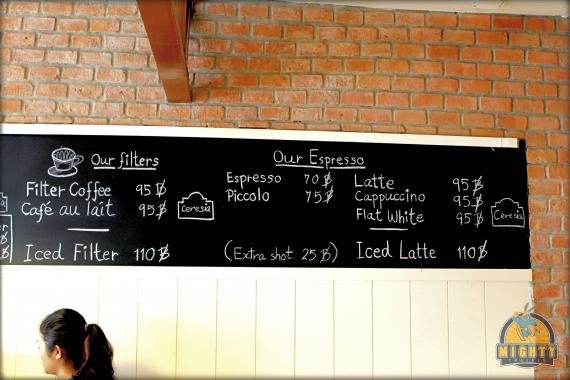 Our filters
Filter Coffee 95฿
Café au lait 95฿
Ceresia
Iced Filter 110฿
Our Espresso
Espresso 70฿
Piccolo 75฿
(Extra shot 25฿)
Latte 95฿
Cappuccino 95฿
Flat White 95฿
Ceresia
Iced Latte 110฿
MIGHTY